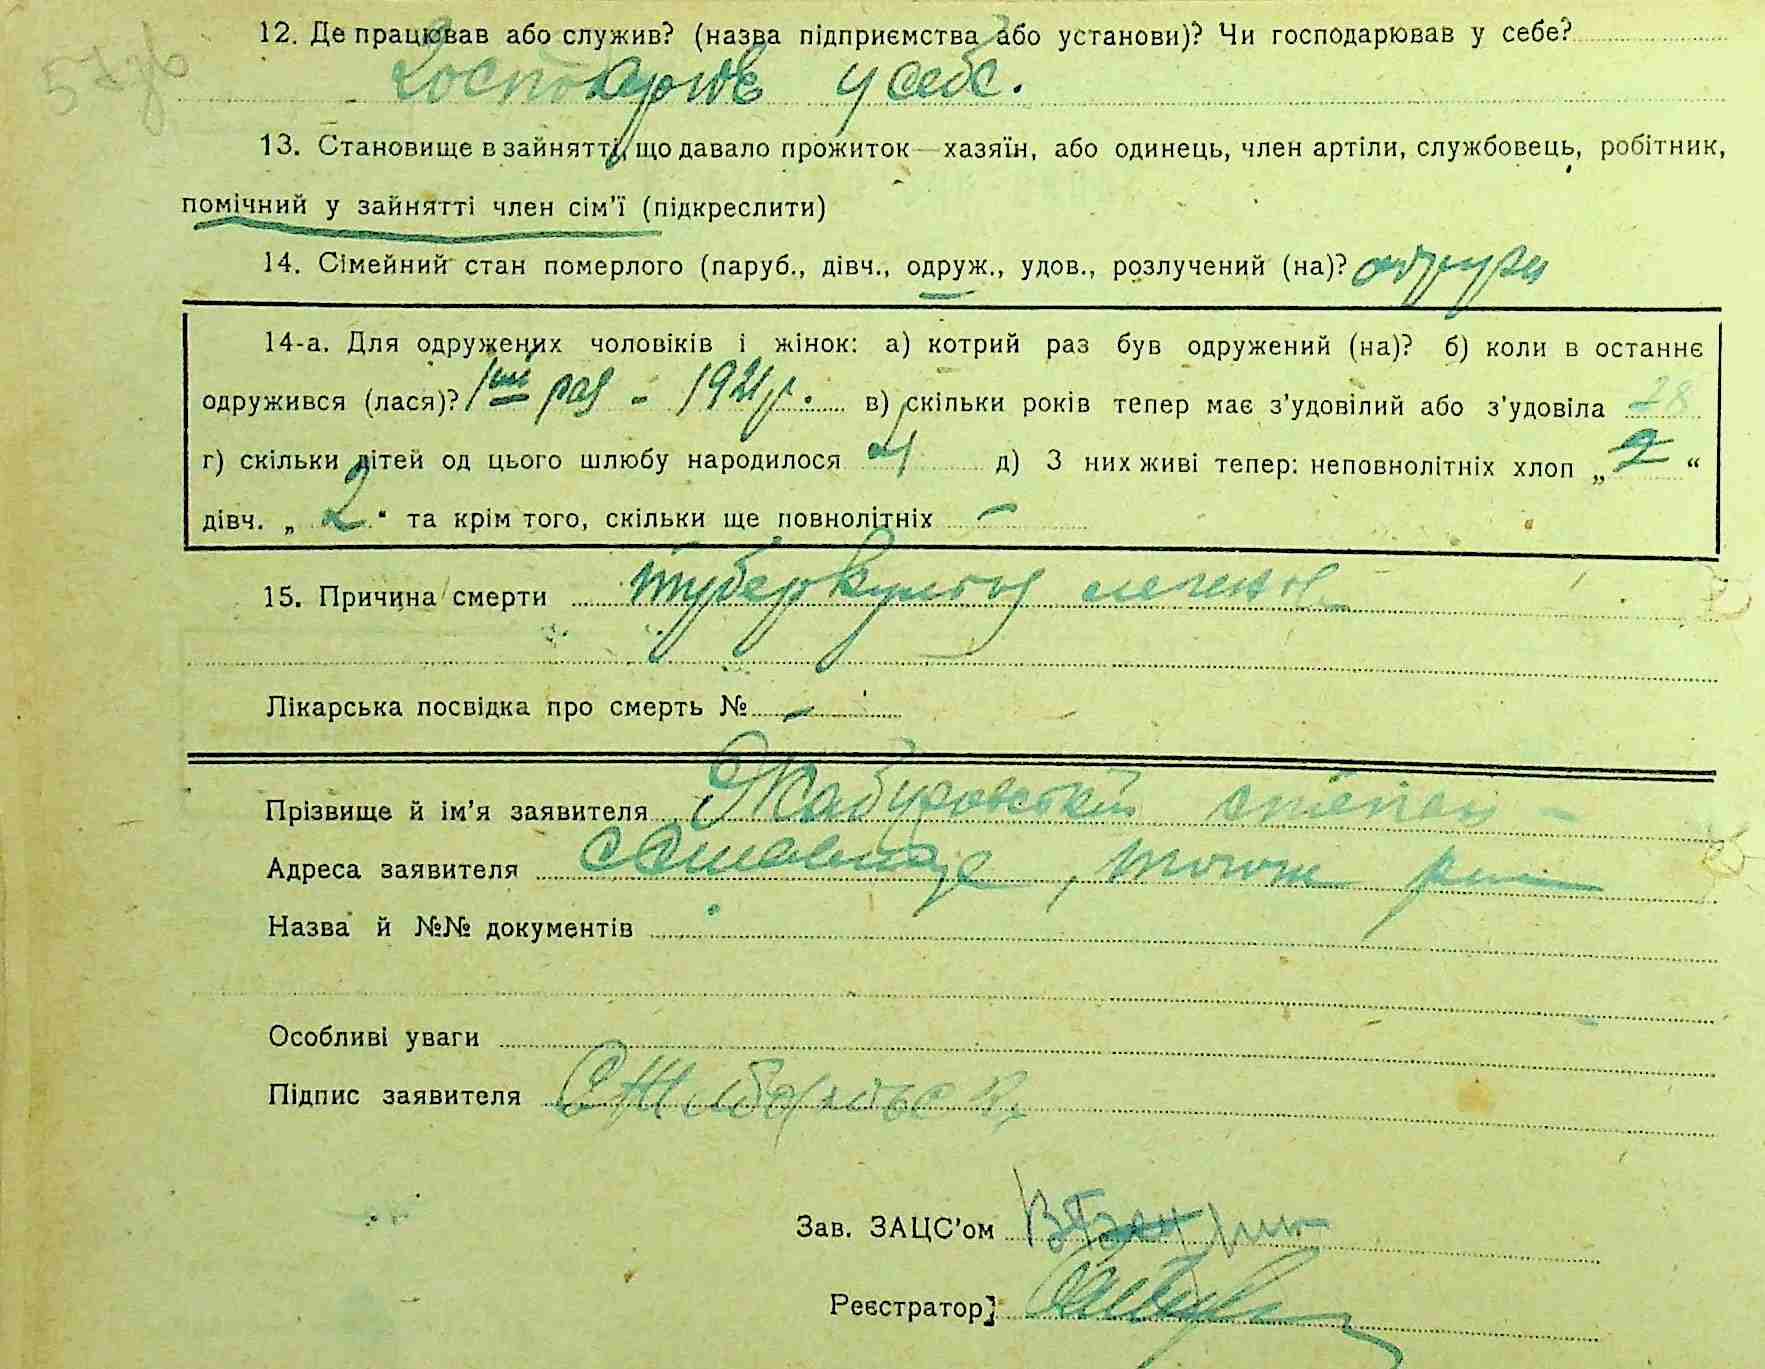 57зв
12. Де працював або служив? (назва підприємства або установи)? Чи господарював у себе?
Господарюв у себе.
13. Становище в зайнятті, що давало прожиток—хазяїн, або одинець, член артіли, службовець, робітник,
помічний у зайнятті член сім'ї (підкреслити)
14. Сімейний стан померлого (паруб., дівч., одруж., удов., розлучений (на)?
14-а. Для одружених чоловіків і жінок: а) котрий раз був одружений (на)? б) коли в останнє
одружився (лася)? 1ший раз - 1921 р. в) скільки років тепер має з'удовілий або з'удовіла 28
г) скільки дітей од цього шлюбу народилося 4 д) З них живі тепер: неповнолітніх хлоп „ 2 “
дівч. „ 2 “ та крім того, скільки ще повнолітніх –
15. Причина смерти туберкульоз легенів
Лікарська посвідка про смерть № –
Прізвище й ім'я заявителя Степан –
Адреса заявителя
Назва й №№ документів
Особливі уваги
Підпис заявителя
Зав. ЗАЦС'ом
Реєстратор